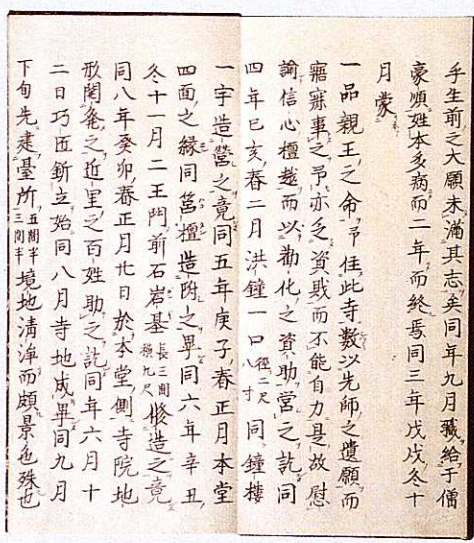 乎生前之大願未満其志矣同年九月職給于僧
豪順姓本多病而二年而終焉同三年戊戌冬十
月蒙
一品親王之命予住此寺数以先師之遺願而
寤寐事之予亦乏資戝而不能自力是故慰
諭信心檀越而以勸化之資助営之訖同
四年己亥春二月洪鐘一口径二尺八寸同鐘樓
一宇造営之竟同五年庚子春正月本堂
四面之縁同筥檀造附之畢同六年辛丑
冬十一月二王門前石岩基長三間横九尺修造之竟
同八年癸卯春正月廿日於本堂側寺院地
形開発之近里之百姓助之訖同年六月十
二日巧匠釿立始同八月寺地成畢同九月
下旬先建臺所五間半三間半境地清浄而頗景色殊也